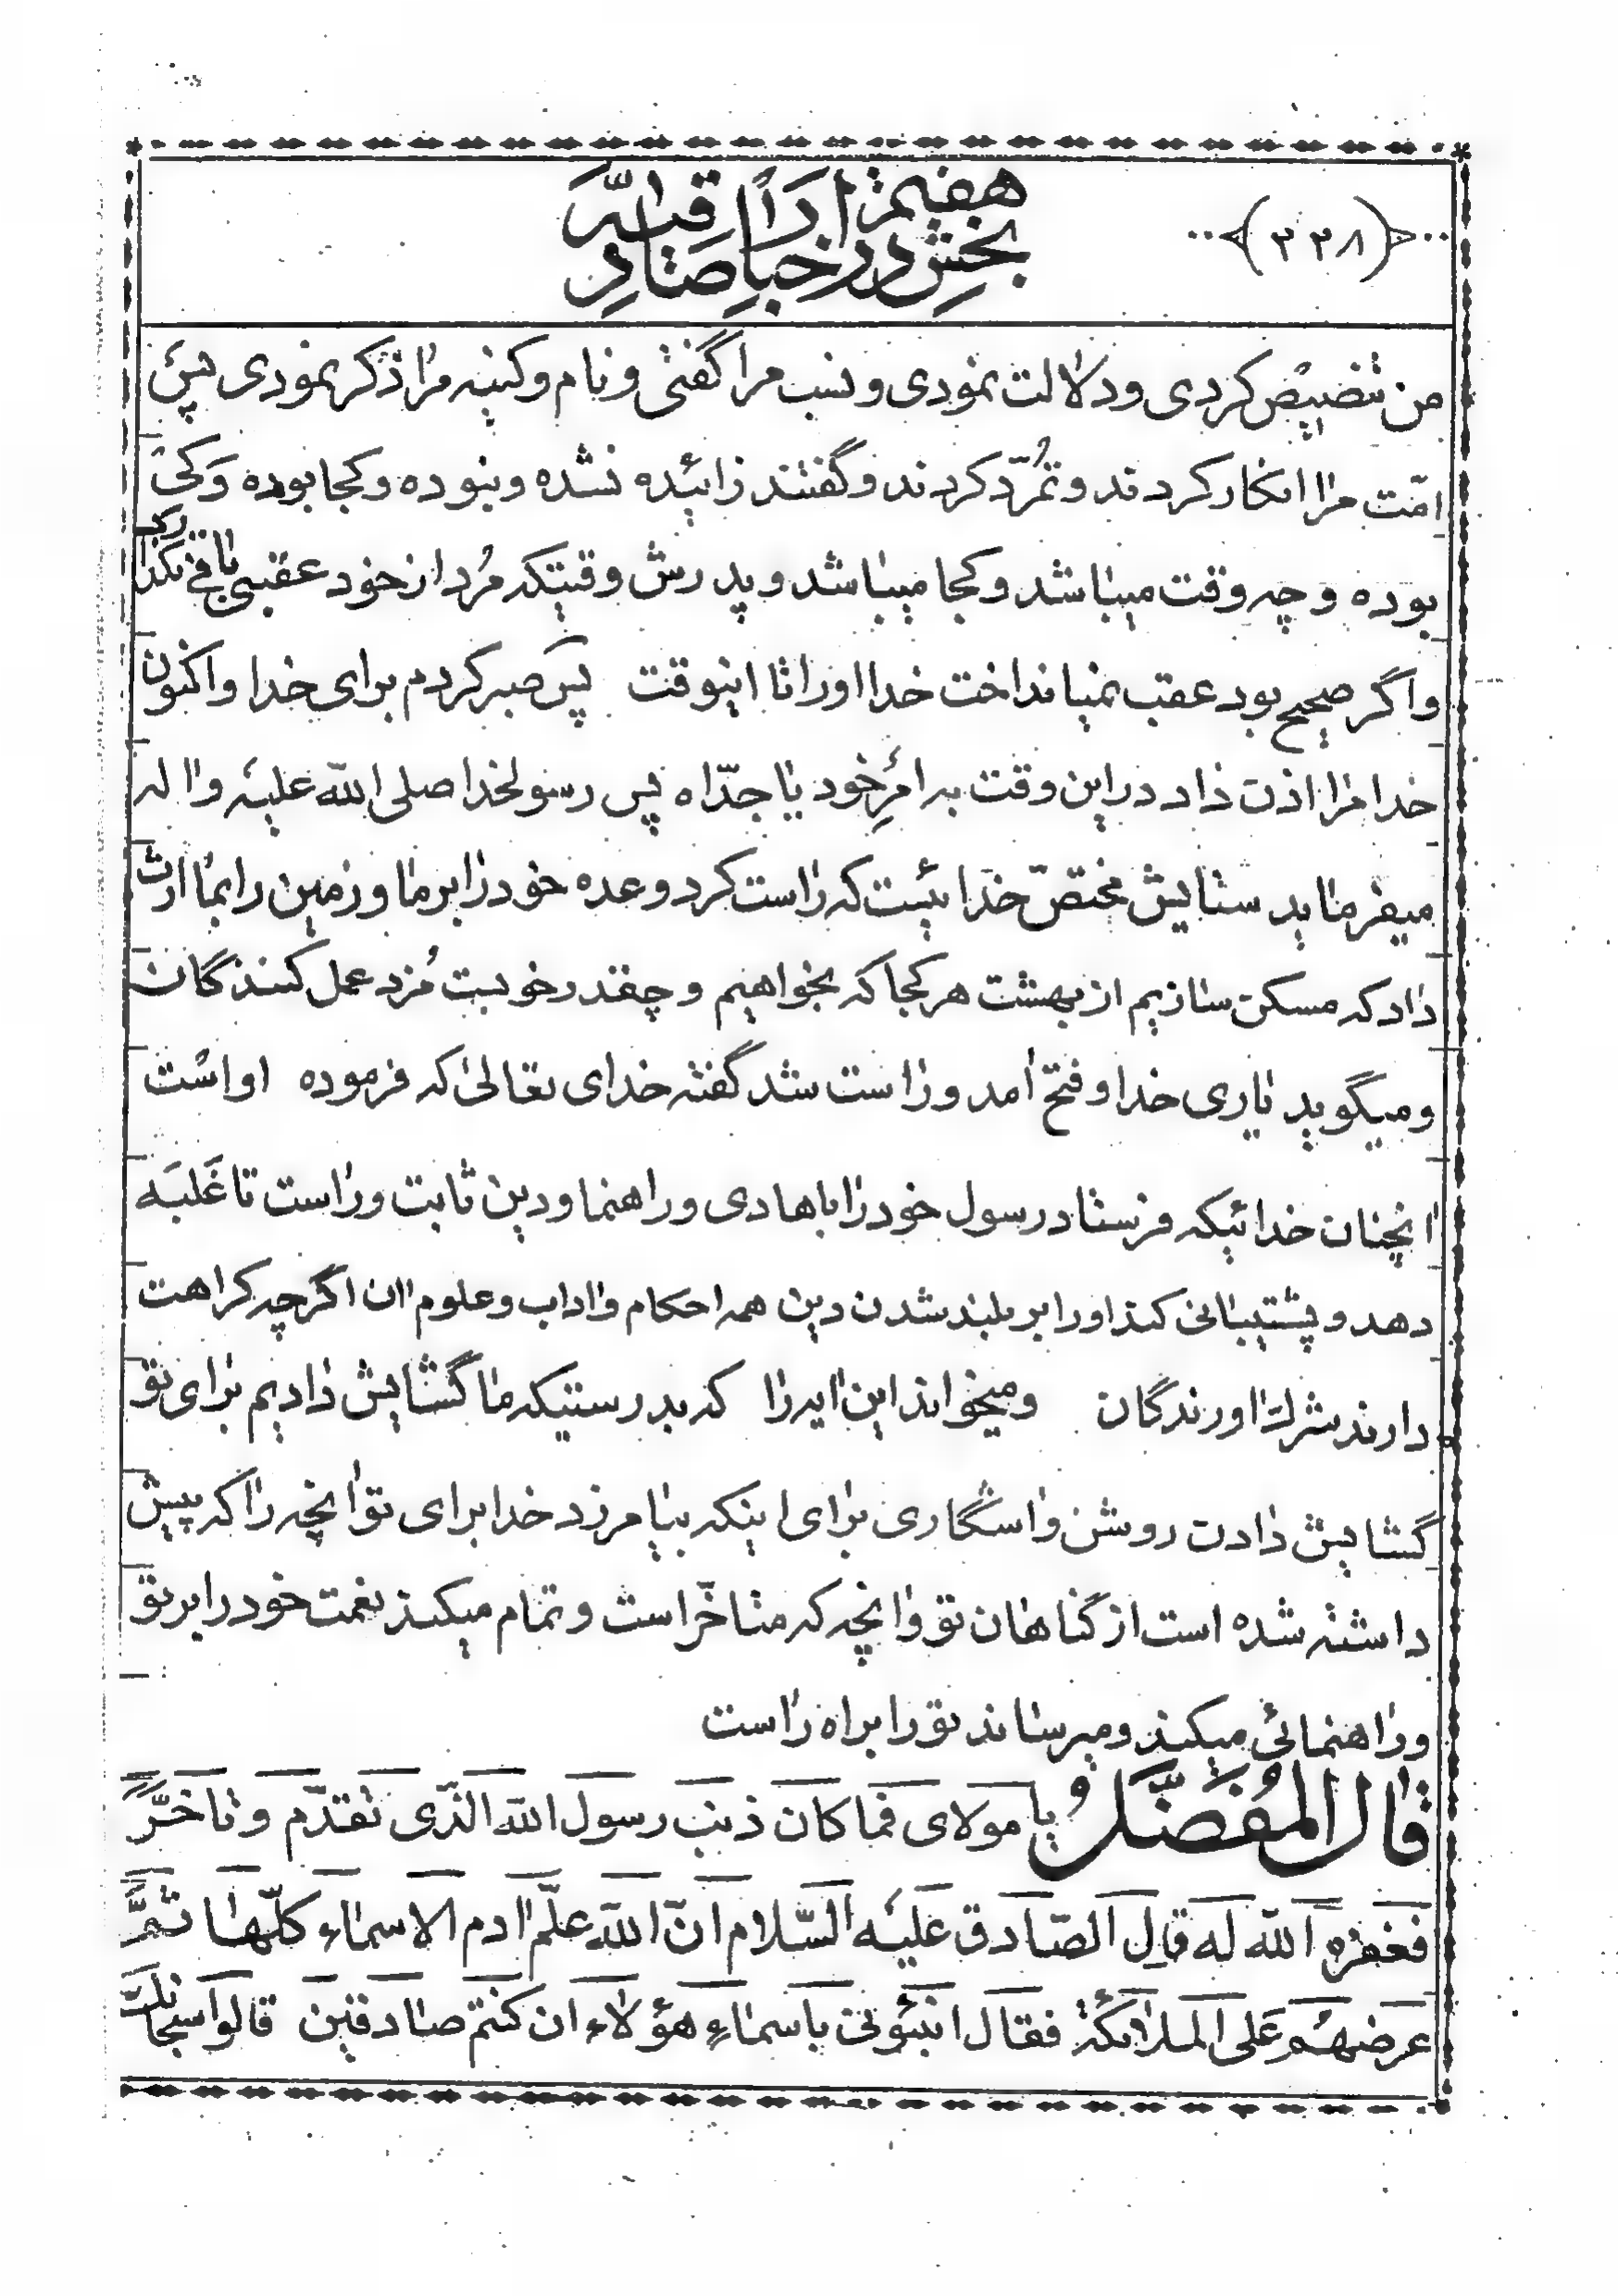 (۲۳۸)
بخش هفتم در اخبار صادقیه
من تنصیص کردی و دلالت نمودی و نسب مرا گفتی و نام و کنیه مرا ذکر نمودی پس
امّت مرا انکار کردند و تمُرّد کردند و گفتند زائیده نشده و نبوده و کجا بوده وَکی
بوده و چه وقت میباشد و کجا میباشد و پدرش وقتیکه مُرد از خود عقبی باقی نگذارد
واگر صحیح بود عقب نمیانداخت خدا او را تا اینوقت پس صبر کردم برای خدا واکنون
خدا مرا اذن داد در این وقت به امرِ خود یا جدّاه پس رسولخدا صلی الله علیه واله
میفرماید ستایش مختصّ خدائیست که راست کرد وعده خود را بر ما و زمین را بما ارث
داد که مسکن سازیم از بهشت هر کجا که بخواهیم و چقدر خوبست مُزد عمل کنندگان
ومیگوید یاری خدا و فتح امد و راست شد گفته خدای تعالی که فرموده او است
انچنان خدائیکه فرستاد رسول خود را با هادی و راهنما و دین ثابت و راست تا غَلبَه
دهد و پشتیبانی کند او را بر بلند شدن دین همه احکام و اداب و علوم ان اگرچه کراهت
دارند شرک اورندگان ومیخواند این ایه را که بدرستیکه ما گشایش دادیم برای تو
گشایش دادن روشن واشگاری برای اینکه بیامرزد خدا برای تو انچه را که پیش
داشته شده است از گناهان تو و انچه که متاخّر است و تمام میکند نعمت خود را بر تو
وراهنمائی میکند ومیرساند تو را براه راست
قال المُفضَّلُ یا مولای فما کان ذنب رسول الله الذّی تقدّم و تاخَّرَ
فغفره الله له قال الصّادق علیه السّلام انّ الله علّم ادم الاسماء کلّها ثمَّ
عرضهُم عَلی الملائکة فقال انبئونی باسماءِ هؤلاء ان کنتم صادقین قالوا سبحانک